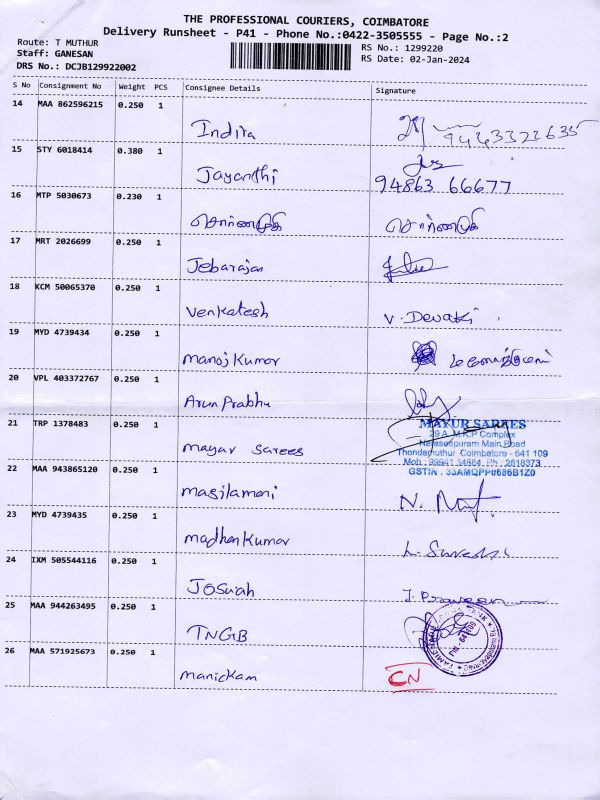 THE PROFESSIONAL COURIERS, COIMBATORE
Delivery Runsheet - P41 - Phone No.:0422-3505555 - Page No.:2
Route: T MUTHUR
RS No.: 1299220
Staff: GANESAN
RS Date: 02-Jan-2024
DRS No.: DCJB129922002
S No Consignment No Weight PCS Consignee Details Signature
14 MAA 862596215 0.250 1
Indira
15 STY 6018414 0.380 1
Jayanthi 94863 66677
16 MTP 5030673 0.230 1
17 MRT 2026699 0.250 1
Jebarajan
18 KCM 50065370 0.250 1
Venkatesh V. Devaki
19 MYD 4739434 0.250 1
Manoj Kumar
20 VPL 403372767 0.250 1
Arun Prabhu
21 TRP 1378483 0.250 1
MAYUR SAREES
29 A, M.K.P Complex
Naraseepuram Main Road
Mayar Sarees
Thondamuthur Coimbatore - 641 109
22 MAA 943865120 0.250 1
Masilamani
23 MYD 4739435 0.250 1
Madhan Kumar L. Sureshi
24 IXM 505544116 0.250 1
Josuiah J. Praveen
25 MAA 944263495 0.250 1
TNGB
26 MAA 571925673 0.250 1
Manickam CN